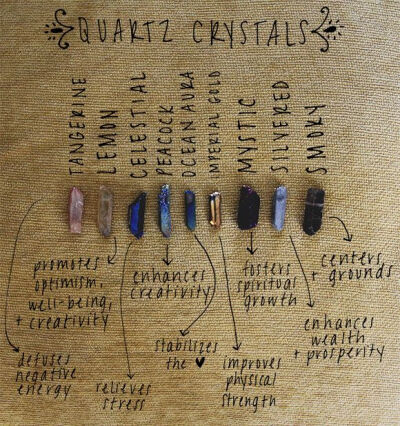 QUARTZ CRYSTALS
TANGERINE
LEMON
CELESTIAL
PEACOCK
OCEAN AURA
IMPERIAL GOLD
MYSTIC
SILVERED
SMOKY
promotes
optimism,
well-being,
+ creativity
enhances
creativity
fosters
spiritual
growth
centers
+ grounds
defuses
negative
energy
relieves
stress
stabilizes
the ♥
improves
physical
strength
enhances
wealth
+ prosperity